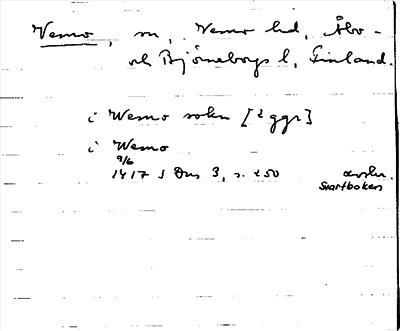 Vemo, sn, Vemo hd, Åbo-
och Björneborgs l, Finland.
i Wemo sokn [2 ggr]
i Wemo
9/6
1417 s. 250 avskr.
Svartboken